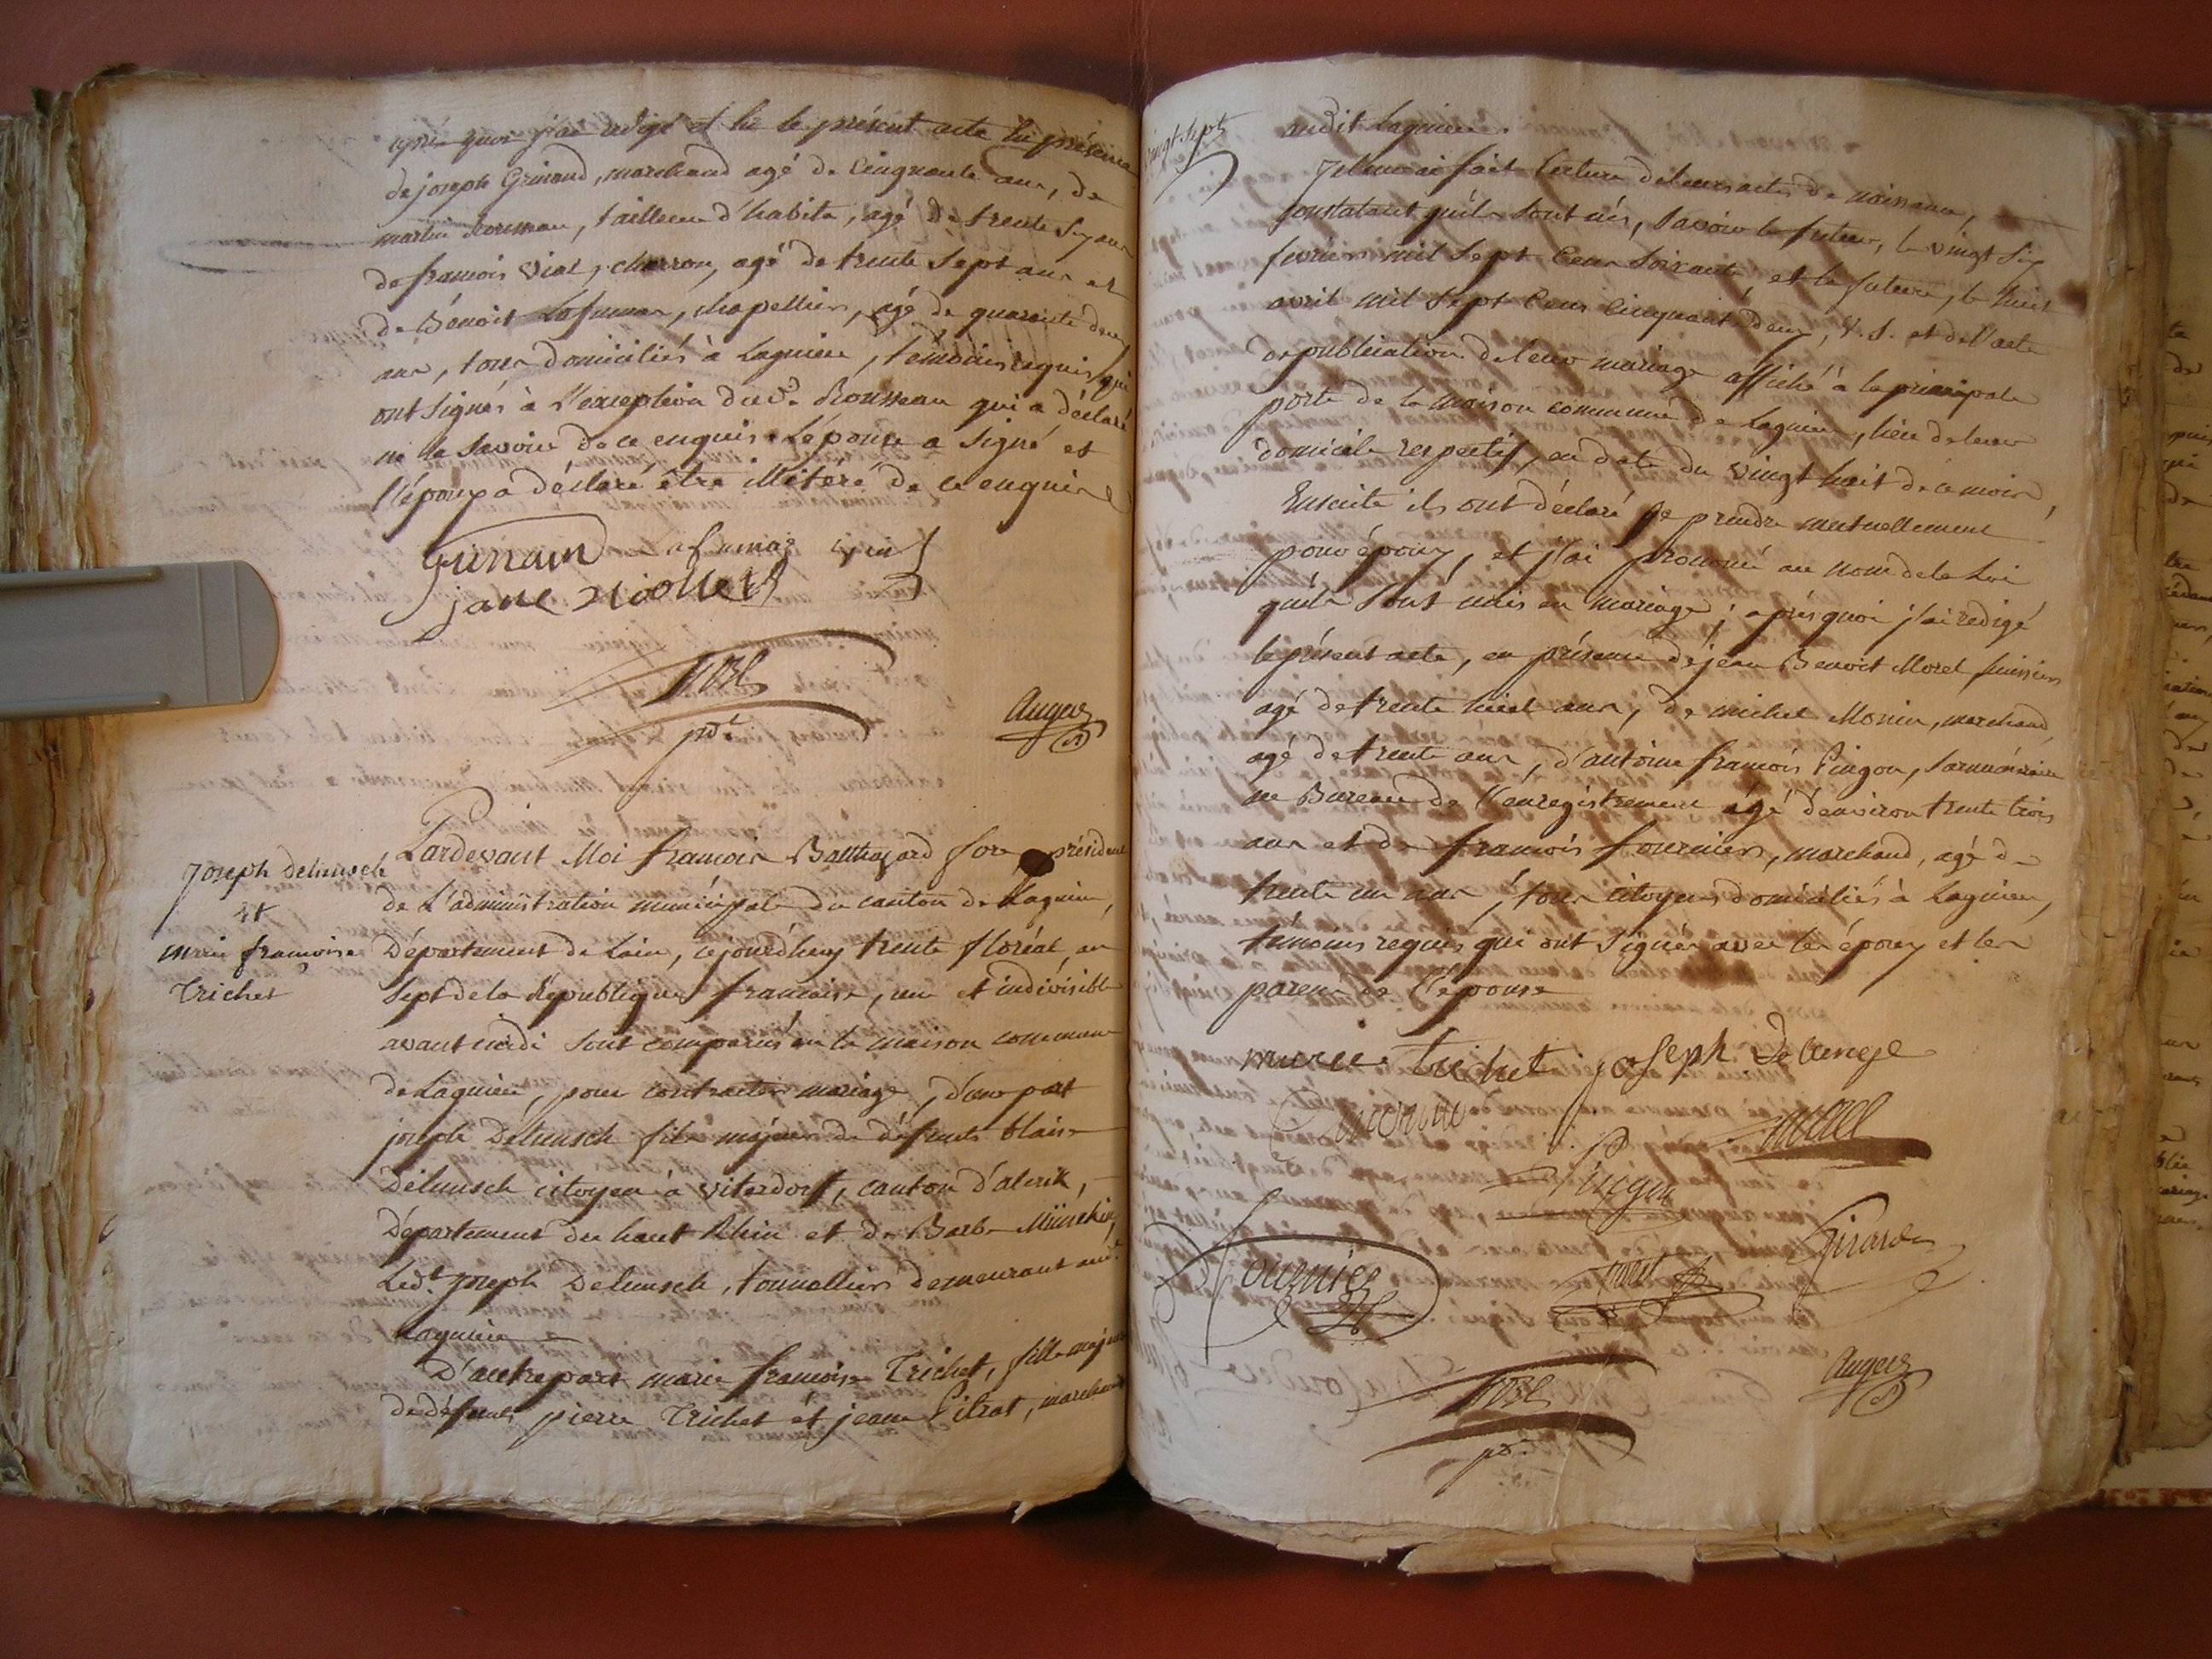 après quoi j'ai redigé et lu le présent acte En présence
de joseph Grinand, marchand agé de Cinquante ans, de
martin Rousseau, tailleur d'habits, agé de trente six ans
de francois Vial, charron, agé de trente sept ans et
de Bénoit Lafumas, chapellier, agé de quarante deux
ans, tous domiciliés à Lagnieu, temoins requis qui
ont signés à l'exception dud. Rousseau qui a déclaré
ne le savoir de ce enquis. L'epouse a signé et
l'époux a déclaré être illitéré de ce enquis
Grinand Lafumas vial
jane
pdt
Auger
Joseph Delunsch
et
marie françoise
Trichet
Pardevant Moi francois Balthazard président
de L'administration municipale du canton de Lagnieu,
Département de Lain, cejourd'huy trente floréal, an
sept de la République francaise, une et indivisible
avant midi sont comparus en la maison commune
de Lagnieu, pour contracter mariage, d'une part
joseph Delunsch fils majeur de défunts blaise
Delunsch citoyen à Viterdorf, canton d'alerik,
Département du haut Rhin et de Barbe
Led.t joseph Delunsch, tonnellier demeurant aud.t
Lagnieu
D'autre part marie francoise Trichet, fille majeure
de défunts pierre Trichet et jeanne Pitrat, marchand
vingt sept
audit Lagnieu.
Je leur ai fait lecture de leurs actes de naissance,
constatant qu'ils sont nés, savoir le futur, le vingt six
fevrier mil sept Cens soixante, et la future, le huit
avril mil sept Cens Cinquante deux, V. S. et de l'acte
de publication de leur mariage affiché à la principale
porte de la maison commune de Lagnieu, lieu de leur
domicile respectif, en date du vingt huit de ce mois,
Ensuite ils ont déclaré se prendre mutuellement
pour époux, et j'ai prononcé au nom de la Loi
qu'ils sont unis en mariage; après quoi j'ai redigé
le présent acte, en présence de jean Benoit Morel huissier
agé de trente huit ans, de michel Monin, marchand
agé de trente ans, d'antoine francois Pingon, surnuméraire
au Bureau de l'enregistrement agé d'environ trente trois
ans et de francois fournier, marchand, agé de
trente un ans, tous citoyens domiciliés à Lagnieu,
temoins requis qui ont signés avec les époux et les
parens de l'epouse
marie trichet joseph Delunsje
monin morel
Pingon
fournier Girard
Auger
pdt